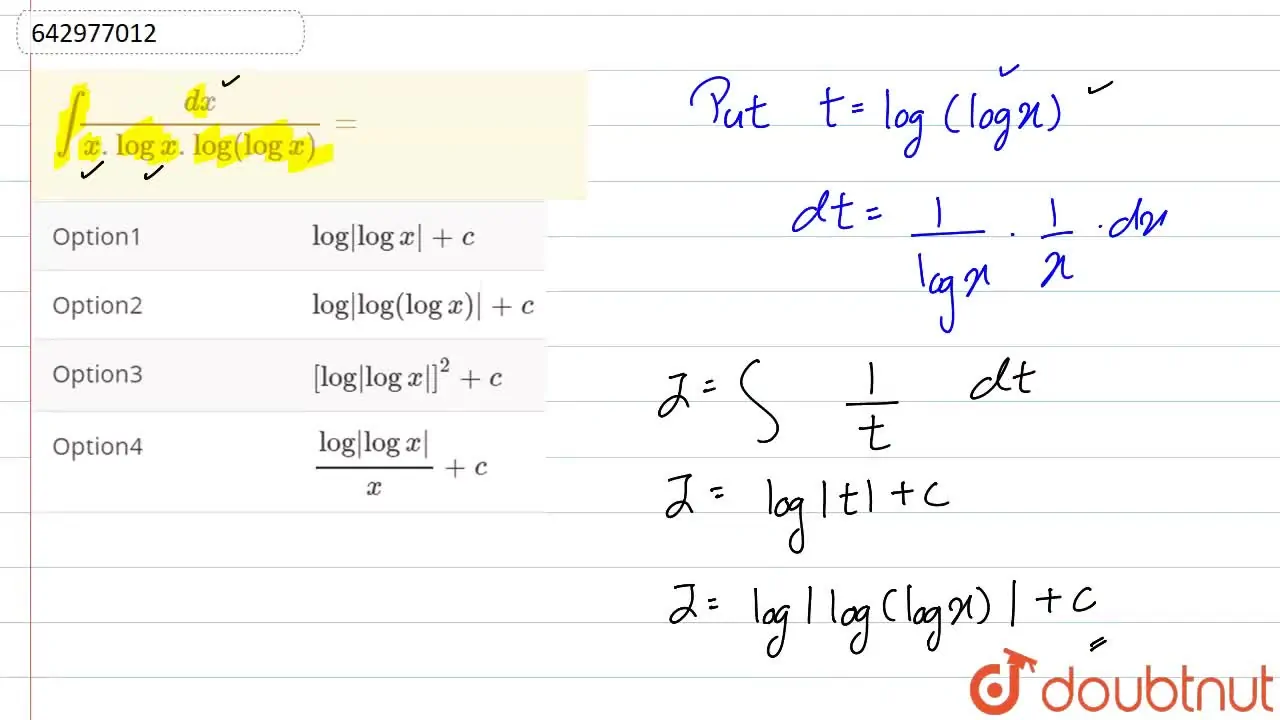 642977012
∫ dx / x. log x. log(log x) =
Option1 log|log x| + c
Option2 log|log(log x)| + c
Option3 [log|log x|]² + c
Option4 log|log x| / x + c
Put t = log (logx)
dt = 1/logx . 1/x . dx
I = ∫ 1/t dt
I = log|t| + c
I = log|log(logx)| + c
doubtnut